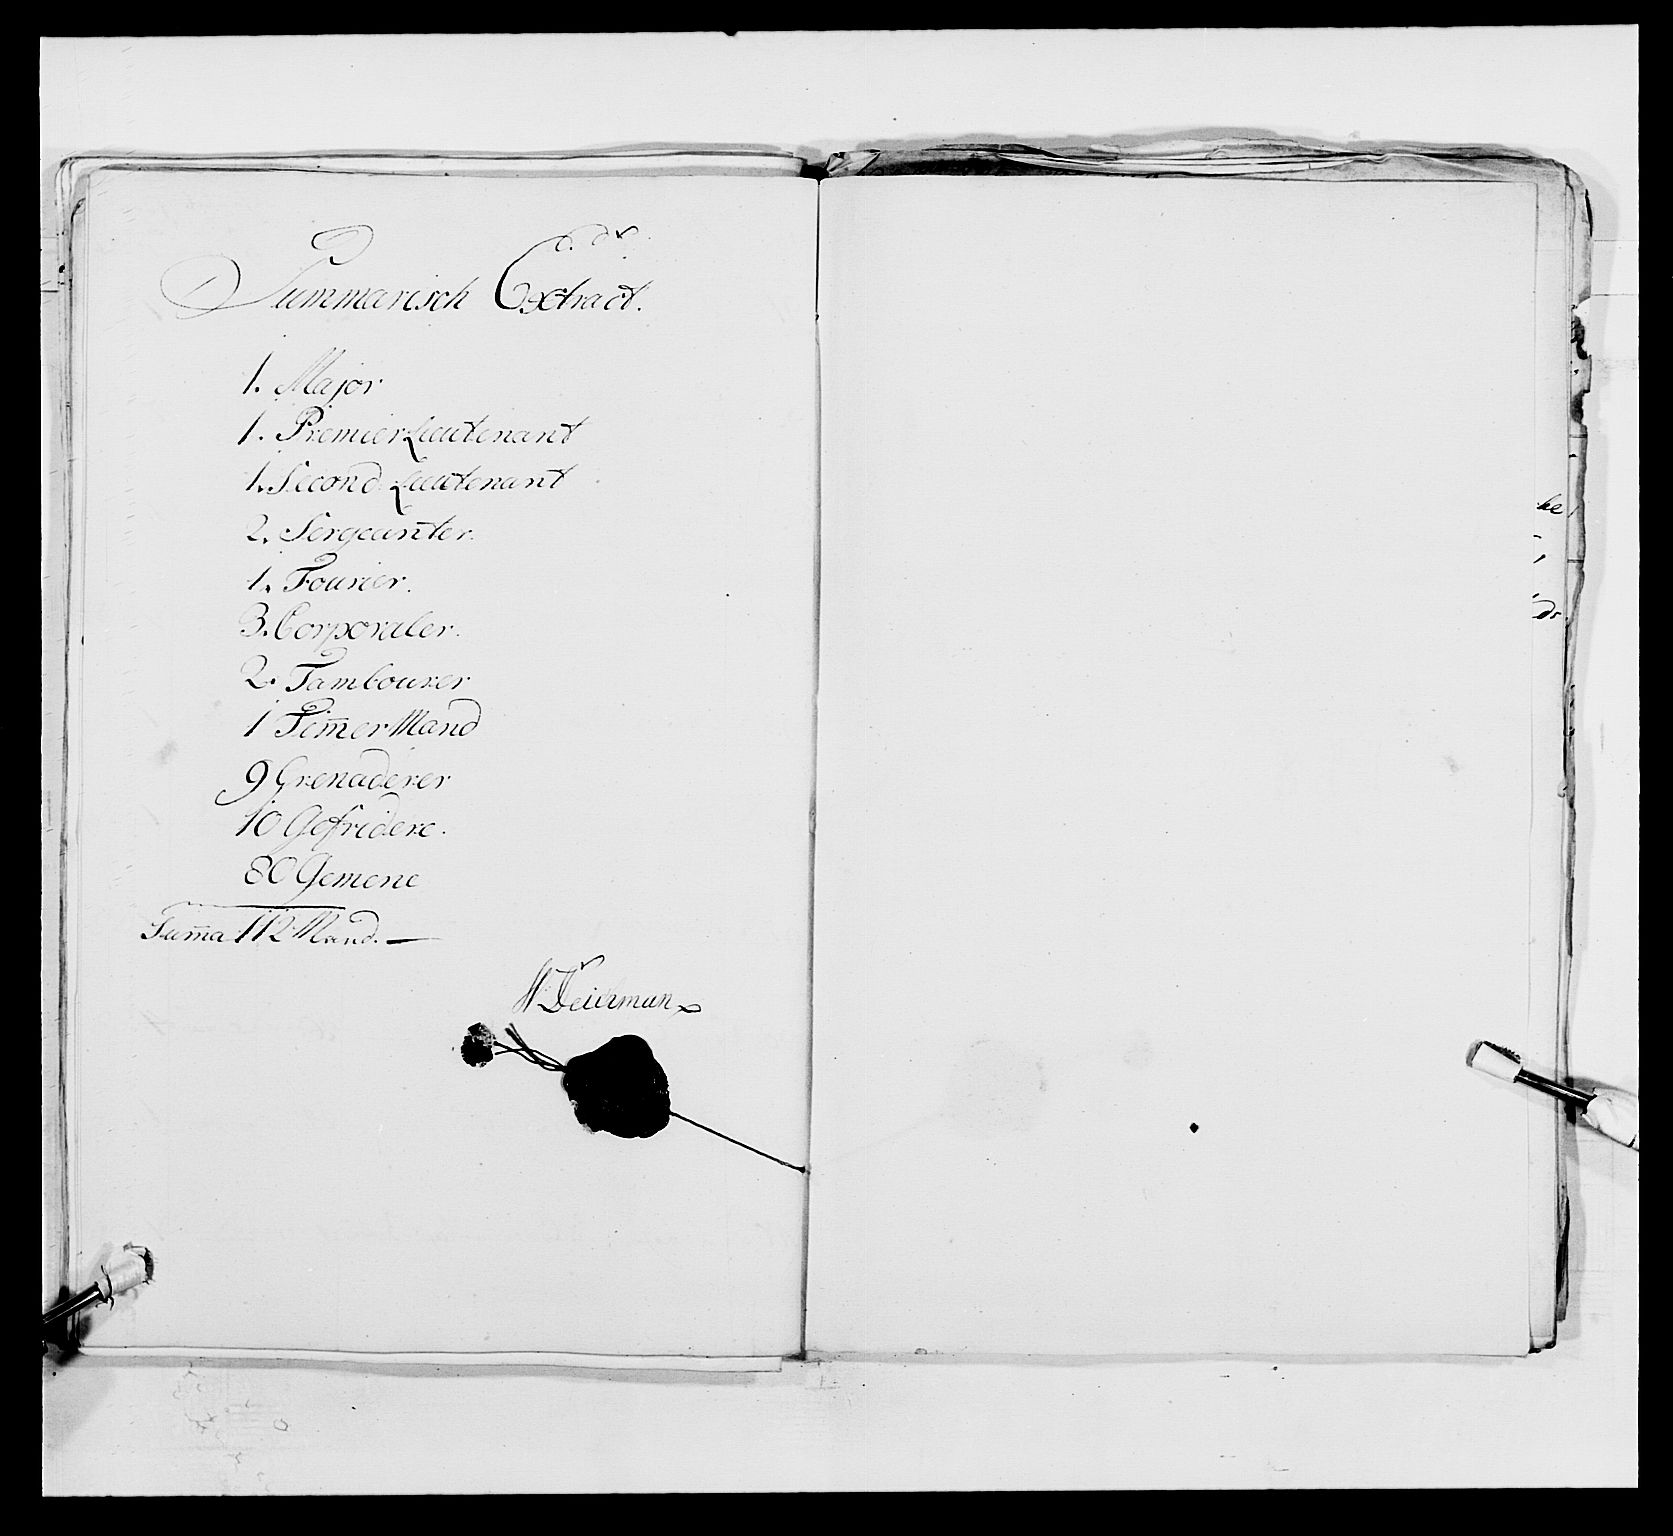 Summarisch Extract.
1. Major
1. Premier Lieutenant
1. Second Lieutenant
2. Sergeanter.
1. Fourier.
3. Corporaler.
2. Tambourer
1 Tim̅er Mand
9 Grenaderer
10 Gefridere.
80 Gemene
Sum̅a 112 Mand. —